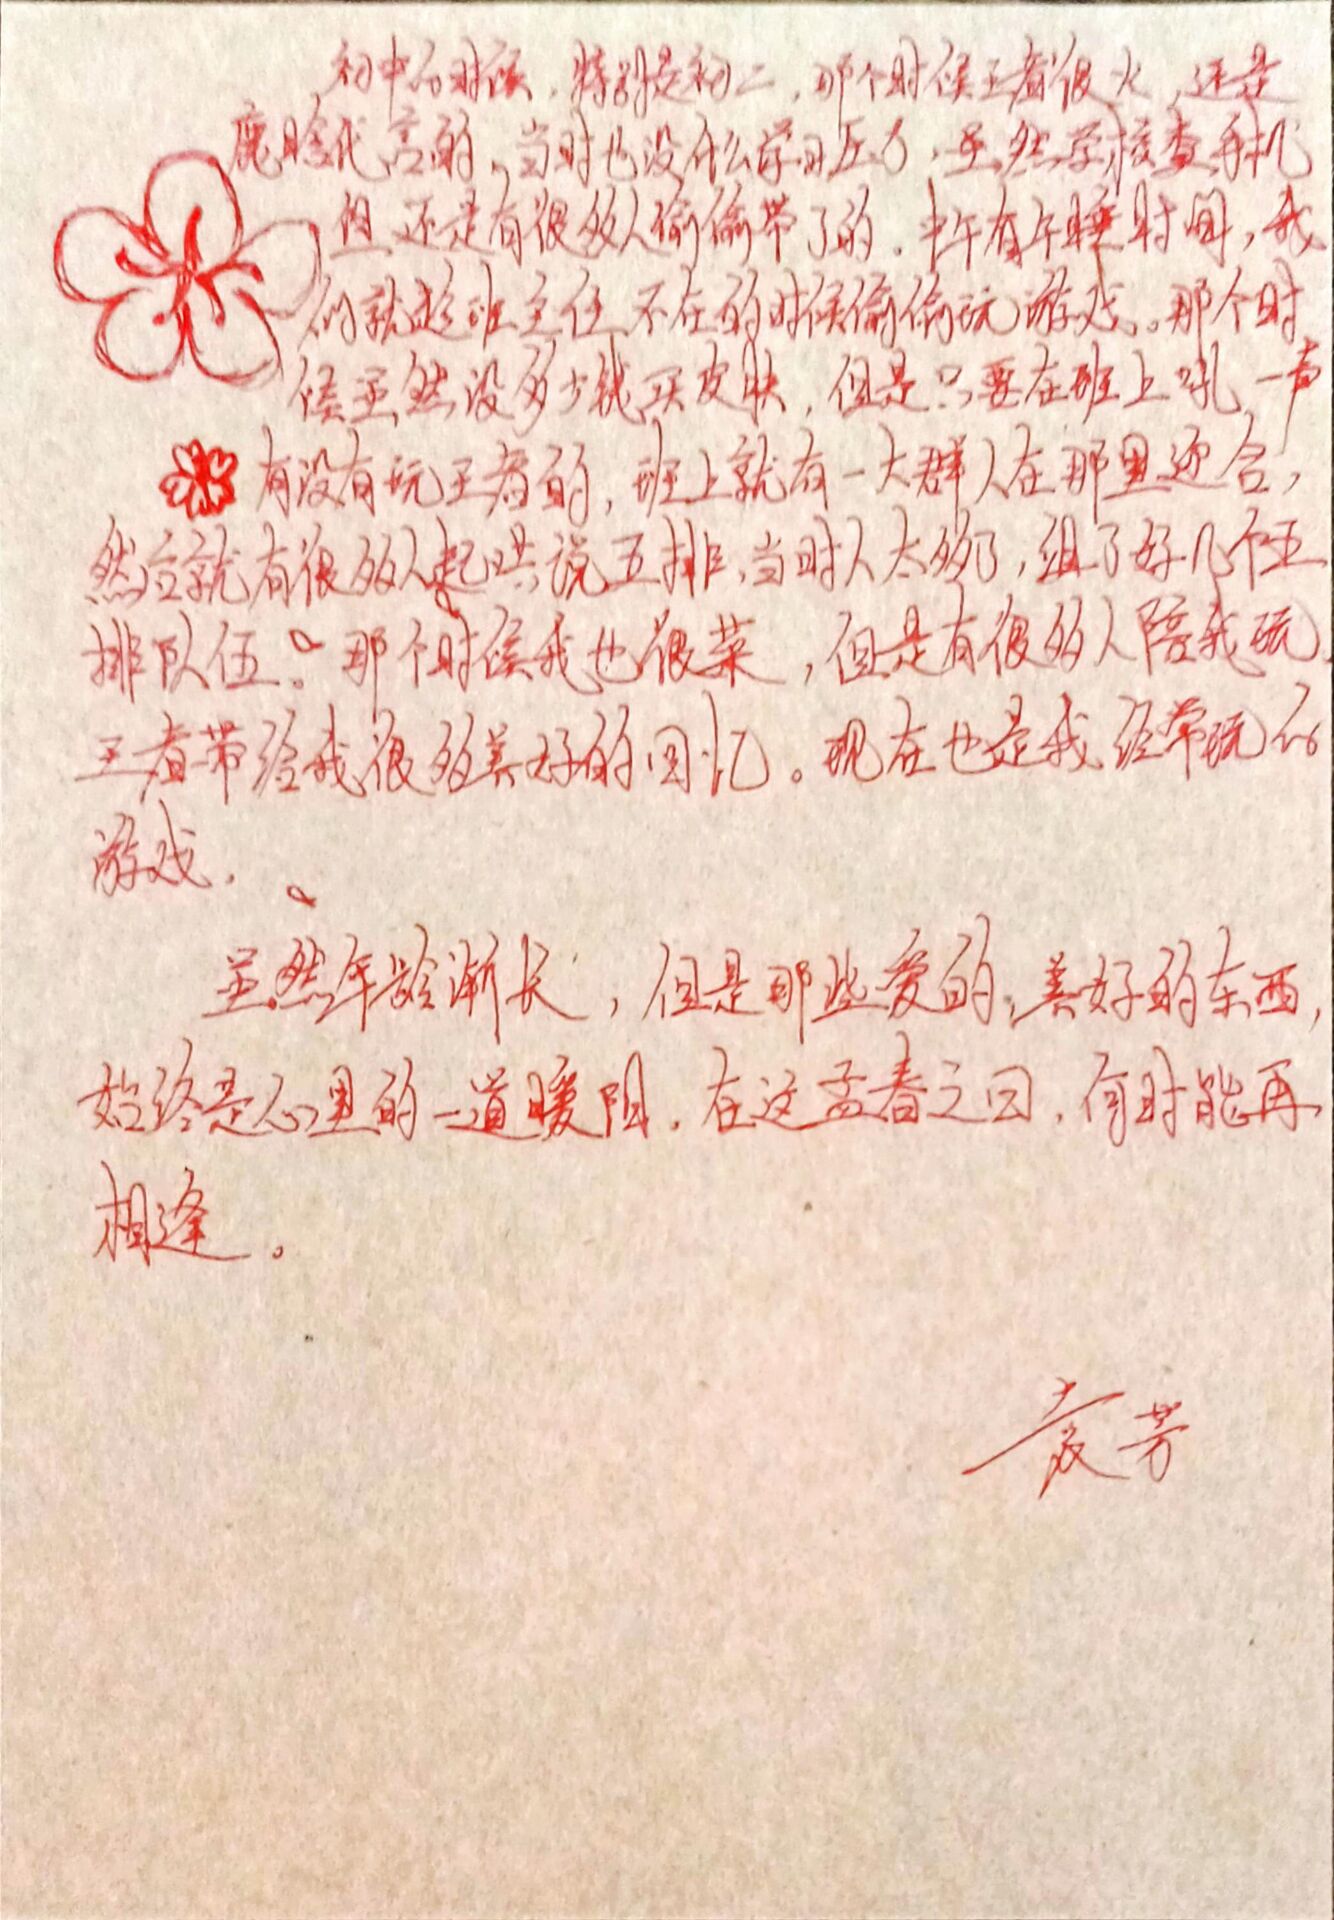 初中的时候，特别是初二，那个时候王者很火，还是
鹿晗代言的，当时也没什么学习压力，虽然学校查手机
但还是有很多人偷偷带了的。中午有午睡时间，我
们就趁班主任不在的时候偷偷玩游戏。那个时
候虽然没多少钱买皮肤，但是只要在班上吼一声
有没有玩王者的，班上就有一大群人在那里迎合，
然后就有很多人起哄说五排，当时人太多了，组了好几个五
排队伍。那个时候我也很菜，但是有很多人陪我玩，
王者带给我很多美好的回忆。现在也是我经常玩的
游戏．
虽然年龄渐长，但是那些爱的，美好的东西，
始终是心里的一道暖阳．在这孟春之日，何时能再
相逢。
袁芳